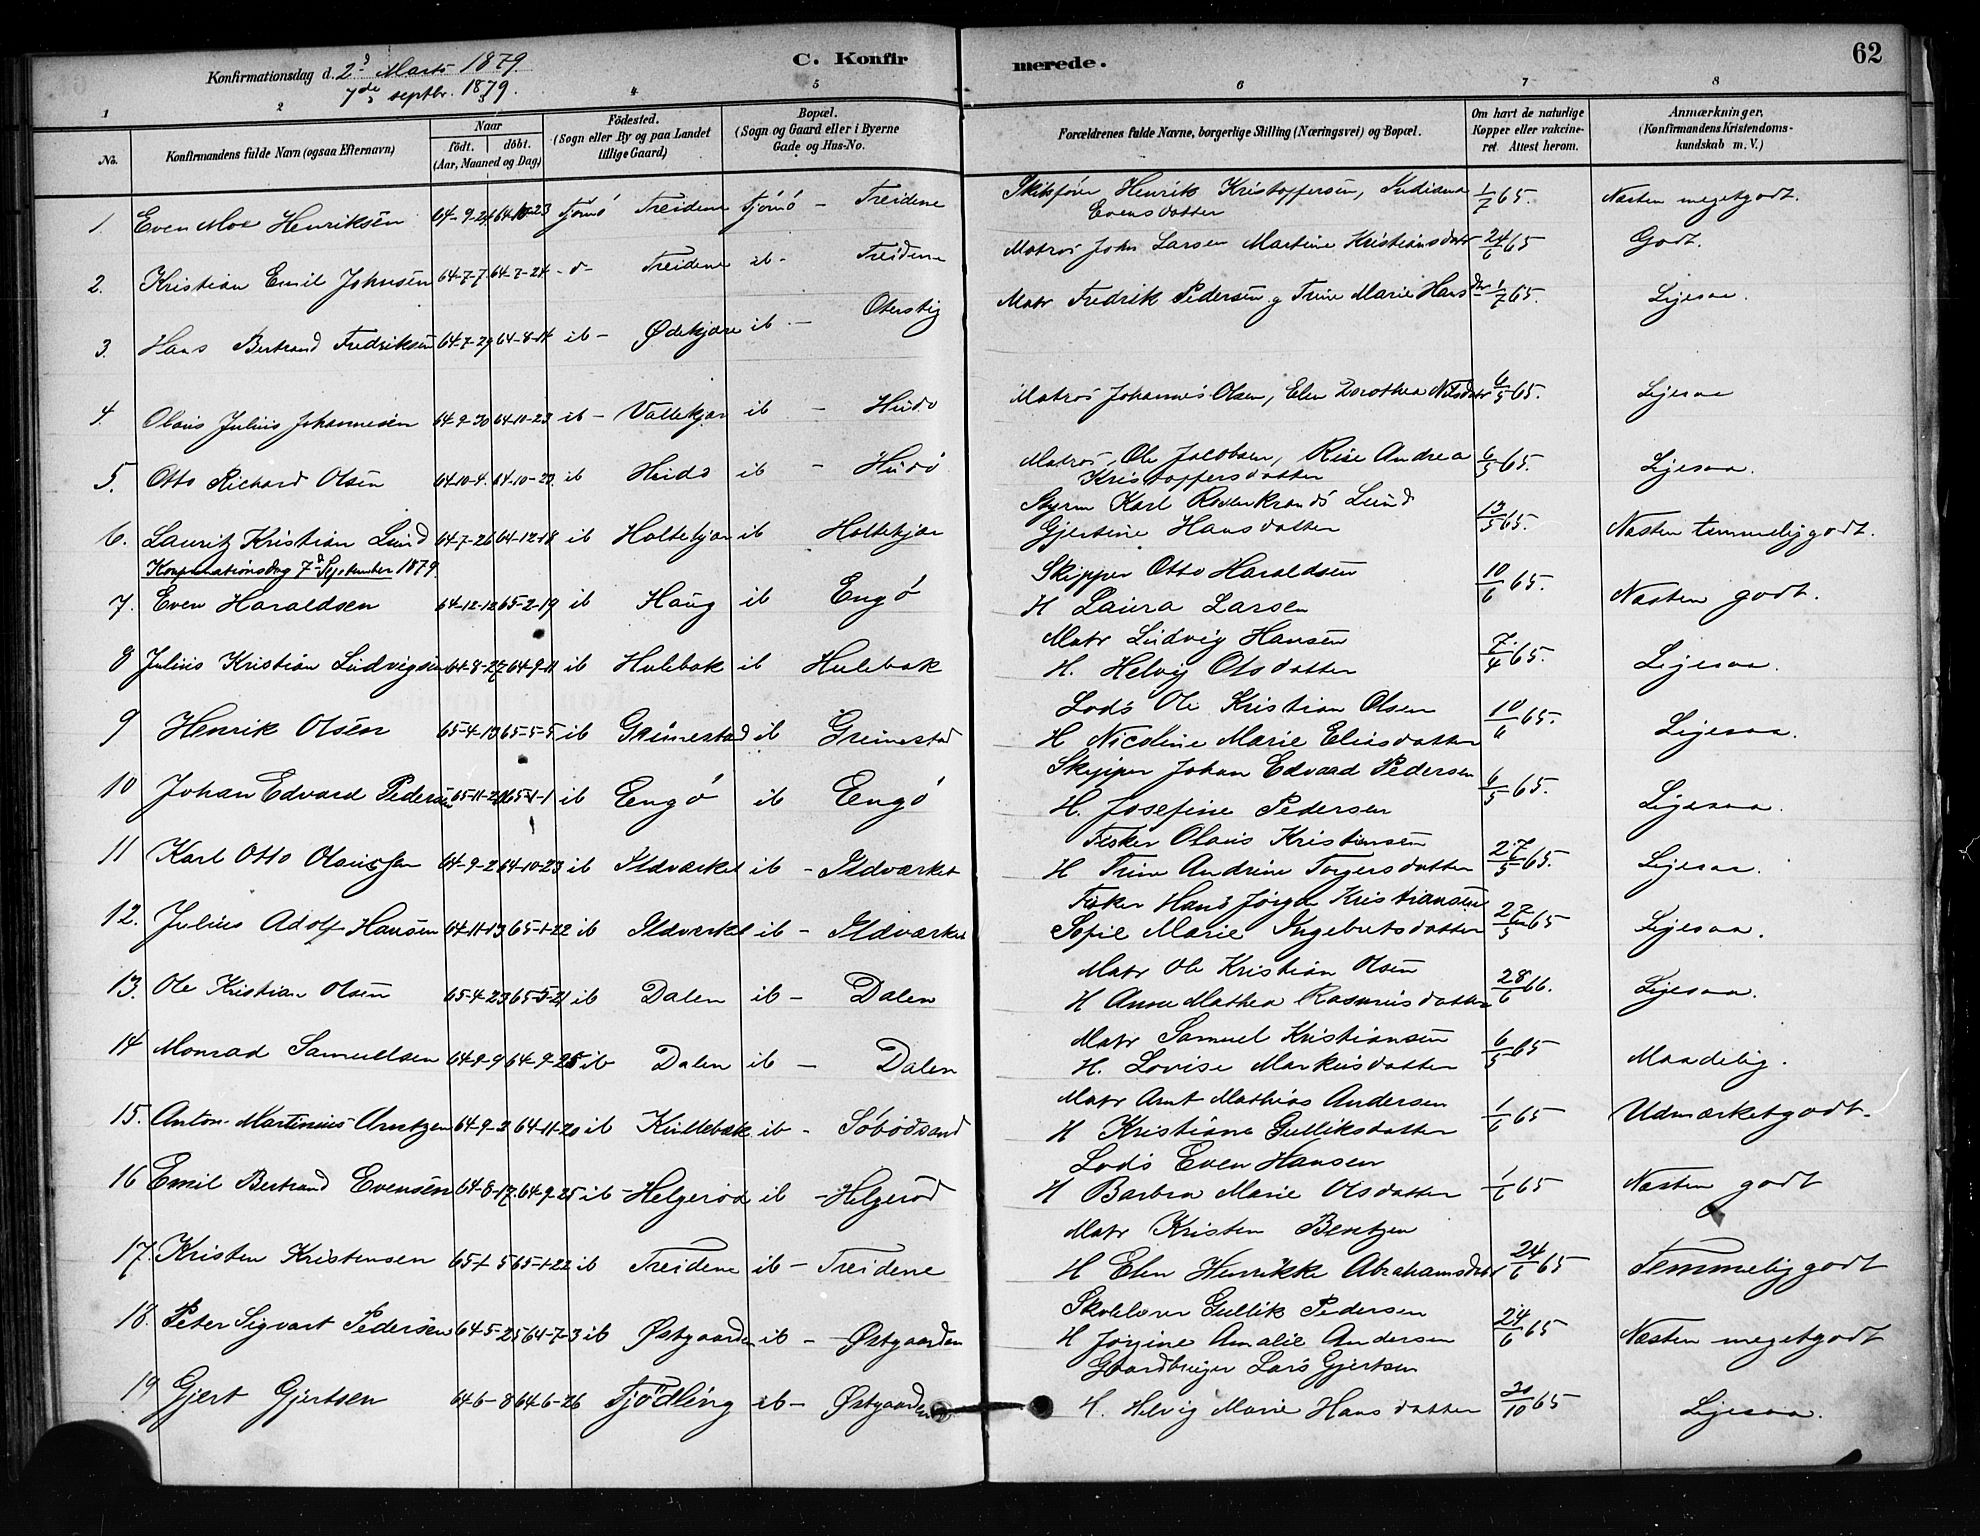 Konfirmationsdag d. 2d Marts 1879
7de septbr. 1879.
C. Konfirmerede.
62
1 2 3 4 5 6 7 8
No.
Konfirmandens fulde Navn (ogsaa Efternavn)
Naar født. døbt. (Aar, Maaned og Dag)
Födested. (Sogn eller By og paa Landet tillige Gaard)
Bopæl. (Sogn og Gaard eller i Byerne Gade og Hus-No.
Forældrenes fulde Navne, borgerlige Stilling (Næringsvei) og Bopæl.
Om havt de naturlige Kopper eller vakcineret. Attest herom.
Anmærkninger, (Konfirmandens Kristendomskundskab m. V.)
1. Even Moe Henriksen 64-9-24 64-10-23 Tjømø Treidene Tjømø - Treidene Henrik Kristoffersen, Indiana Evensdatter 1/7 65. Næsten megetgodt.
2. Kristian Emil Johnsen 64-7-7 64-7-24 - d- Treidene ib - Treidene Matros John Larsen Martine Kristiansdatr 24/6 65 Godt.
3. Hans Bertrand Fredriksen 64-7-29 64-8-14 ib - Ødekjære ib - Oterstig Matr Fredrik Pedersen g Trine Marie Hansdtr 1/7 65. Ligesaa.
4. Olaus Julius Johannesen 64-9-30 64-10-23 ib - Vallekjær ib - Hudø Matros Johannes Olsen, Elen Dorothea Nilsdatr 6/5 65. Ligesaa
5. Otto Richard Olsen 64-10-4. 64-10-23 ib Hudø ib - Hudø Matros Ole Jacobsen, Rise Andrea Kristoffersdatter 6/5 65. Ligesaa.
6. Lauritz Kristian Lund 64-7-26 64-12-18 ib Holtekjær ib Holtekjær Styrm Karl Rosenkrands Lund Gjertine Hansdatter 13/5 65. Næsten temmeliggodt.
Konfirmationsdag 7d September 1879.
7. Even Haraldsen 64-12-12 65-2-19 ib Haug ib Engø Skipper Otto Haraldsen H Laura Larsen 10/6 65. Næsten godt.
8 Julius Kristian Ludvigsen 64-8-27 64-9-11 ib Hulebak ib Hulebak Matr Ludvig Hansen H. Helvig Olsdatter 7/4 65. Ligesaa.
9 Henrik Olsen 65-4-13 65-5-5 ib Grimestad ib Grimestad Lods Ole Kristian Olsen H Nicoline Marie Eliasdatter 10/6 65. Ligesaa.
10 Johan Edvard Pedersen ib Engø ib Engø Skipper Johan Edvard Pedersen H. Josefine Pedersen 6/5 65. Ligesaa.
11 Karl Otto Olausen 64-9-2 64-10-23 ib Ildværket ib - Ildværket Fisker Olaus Kristiansen H Trine Andrine Torgersdatter 27/5 65. Ligesaa.
12. Julius Adolf Hansen 64-11-13 65-1-22 ib Ildværket ib - Ildværket Fisker Hans Jørgen Kristiansen Sofie Marie Ingebretsdatter 27/5 65 Ligesaa.
13. Ole Kristian Olsen 65-4-23 65-5-21 ib Dalen ib - Dalen Matr Ole Kristian Olsen H Anne Mathea Rasmusdatter 28/6 66. Ligesaa.
14 Monrad Samuelsen 64-9-9 64-9-25 ib Dalen ib - Dalen Matr Samuel Kristiansen H. Lovise Markusdatter 6/5 65 Maadelig.
15. Anton Martinius Arntzen 64-9-2 64-11-20 ib Kullebæk ib - Søbødsand Matr Arnt Mathias Andersen H Kristiane Gulliksdatter 1/6 65 Udmærketgodt.
16 Emil Bertrand Evensen 64-8-17 64-9-25 ib - Helgerød ib - Helgerød Lods Even Hansen H Barbra Marie Olsdatter 1/6 65 Næsten godt
17. Kristen Kristensen 65-1-5 65-1-22 ib Treidene ib - Treidene Matr Kristen Bentzen H Elen Henrikke Abrahamsdatr 24/6 65 Temmeliggodt
18. Peter Sigvart Pedersen 64-5-25 64-7-3 ib Østgaarden ib - Østgaarden Skolelærer Gullik Pedersen H Jørgine Amalie Andersen 24/6 65 Næsten megetgodt
19 Gjert Gjertsen 64-6-8 64-6-26 Tjødling ib - Østgaarden Gaardbruger Lars Gjertsen H. Helvig Marie Hansdatter 30/10 65 Ligesaa.